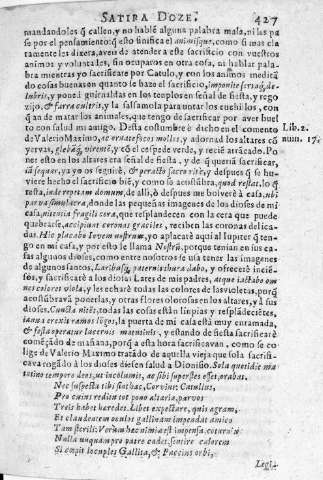 SATIRA DOZE. 427
mandandoles q̃ callen, y no hablẽ alguna palabra mala, ni las pa
se por el pensamiento: q̃ esso sinifica el animisque, como si mas cla
ramente les dixera, aueis de atender a este sacrificio con vuestros
animos y voluntades, sin ocuparos en otra cosa, ni hablar pala-
bra mientras yo sacrificare por Catulo, y con los animos meditã
do cosas buenas en quanto se haze el sacrificio,
lubris, y poned guirnaldas en los templos en señal de fiesta, y rego
zijo, & farra cultris, y la salsamola para vntar los cuchillos, con
q̃ an de matar los animales, que tengo de sacrificar por auer buel
to con salud mi amigo. Desta costumbre è dicho en el comento
de Valerio Maximo, ac ornate focos molles, y adornad los altares cõ
yeruas, glebãq; virentẽ, y cõ el cespede verde, y rezie arrãcado. Po
nen esto en los altares era señal de fiesta, y de q̃ queria sacrificar,
iã sequar, ya yo os seguirè, & peracto sacro ritè, y despues q̃ se hu-
uiere hecho el sacrificio biẽ, y como se acostũbra, quod restat, lo q̃
resta, inde repetam domum, de alli, à despues me boluerè à casa, ubi
parua simulacra, donde las pequeñas imagenes de los dioses de mi
casa, nitentia fragili cera, que resplandecen con la cera que puede
quebrarse, accipiunt coronas graciles, reciben las coronas delica-
das. Hic placabo Iouem nostrum, yo aplacarè aqui al Iupiter q̃ ten-
go en mi casa, y por esto le llama Nostrũ, porque tenian en sus ca
sas algunos dioses, como entre nosotros se vsa tener las imagenes
de algunos santos, Laribusq; paternis thura dabo, y ofrecerè incien-
sos, y sacrificarè a los dioses Lares de mis padres, atque iactabo om
nes colores violæ, y les echarè todas las colores de las violetas, porq̃
acostũbraua ponerlas, y otras flores olorosas en los altares, y à sus
dioses. Cuncta nitẽt, todas las cosas estàn limpias y resplãdecietes,
ianua erexit ramos lõgos, la puerta de mi casa està muy enramada,
& festa operatur lucernis matutinis, y estando de fiesta sacrificarè
començado de mañana, porq̃ a esta hora sacrificauan, como se co
lige de Valerio Maximo tratado de aquella vieja que sola sacrifi-
caua rogãdo à los dioses diesen salud a Dionisio. Sola quotidie ma
tutino tempore deos, ut incolumis, ac sibi superstes esset, orabat.
Nec suspecta tibi sint hæc, Coruine: Catullus,
Pro cuius reditu tot pono altaria, paruos
Tres habet hæredes. Libet expectare, quis ægram,
Et claudentem oculos gallinam impendat amico
Tam sterili: Verùm hæc nimia est impensa, coturnix
Nulla unquam pro patre cadet. sentire calorem
Si cœpit locuples Gallita, & Paccius orbi,
Legi-
Lib. 2.
num. 17.